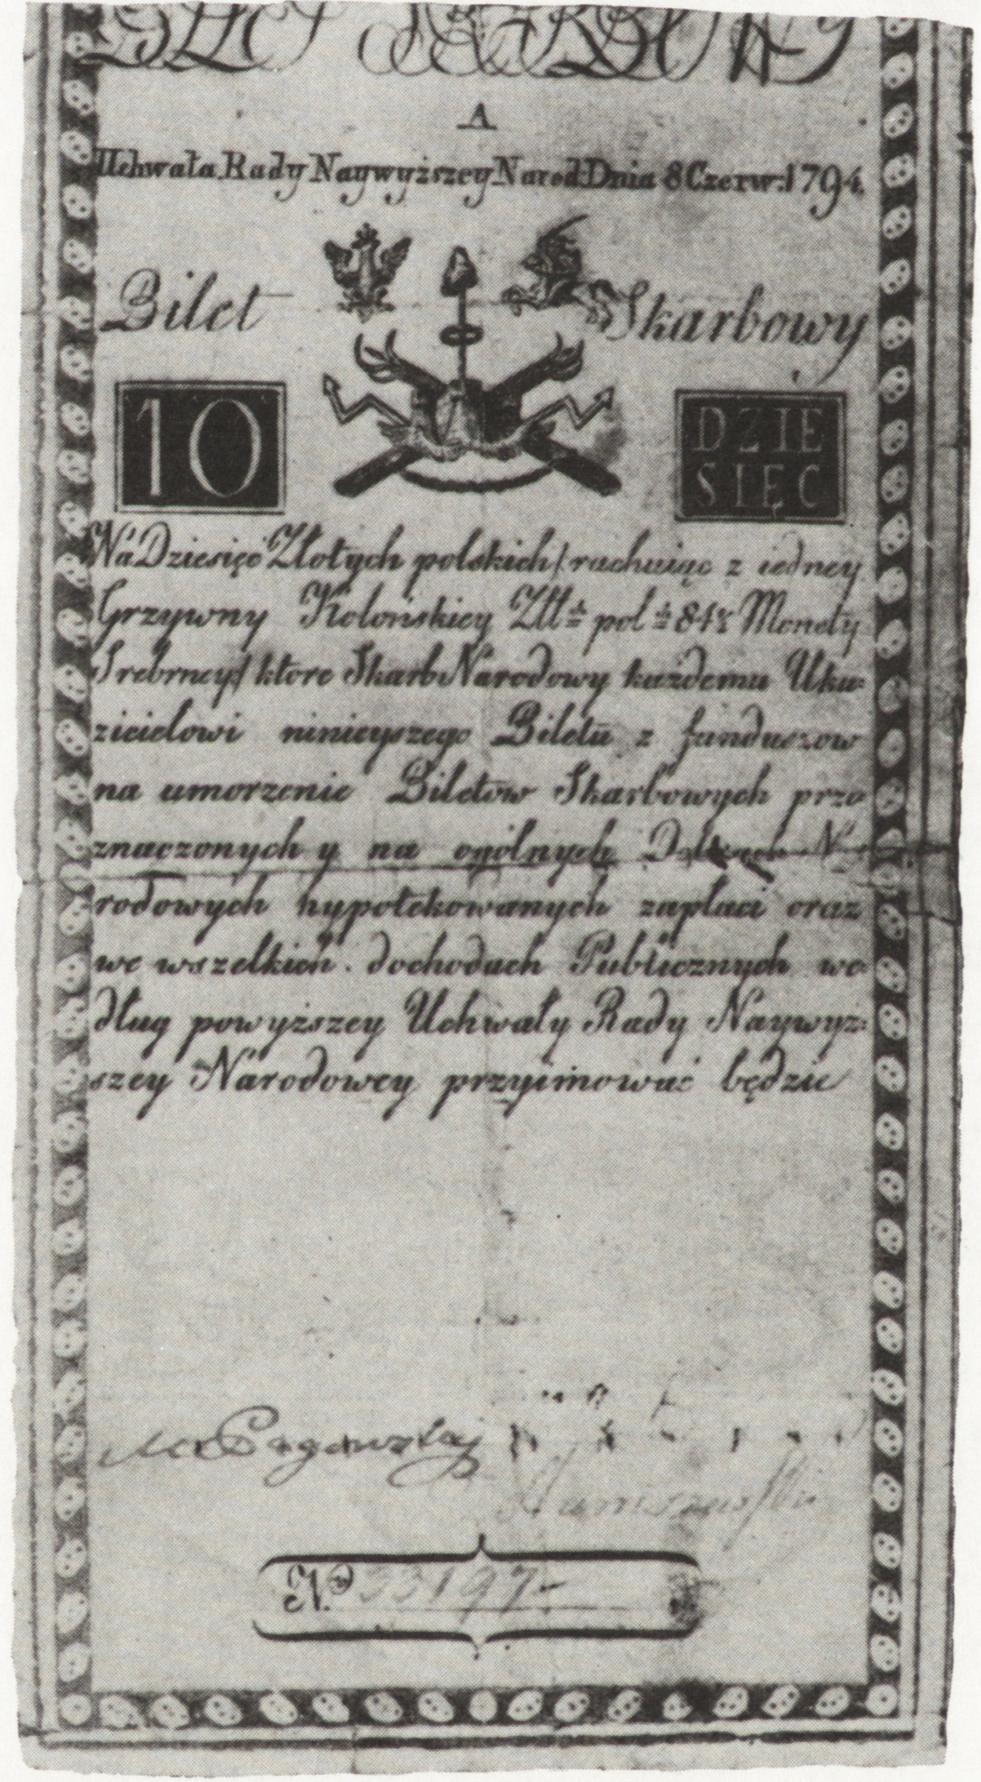 A
Uchwała Rady Naywyższey Narod: Dnia 8 Czerw: 1794.
Bilet Skarbowy
10
DZIE
SIĘC
Na Dziesięć Złotych polskich / rachuiąc z iedney
Grzywny Kolońskiey Złł: pol: 84½ Monety
Srebrney / ktore Skarb Narodowy każdemu Uka:
zicielowi ninieyszego Biletu z funduszow
na umorzenie Biletow Skarbowych prze
znaczonych y na ogólnych Dobrach N
rodowych hypotekowanych zapłaci oraz
we wszelkich dochodach Publicznych we
dług powyższey Uchwały Rady Naywyż:
szey Narodowey przyimować będzie
No 33197